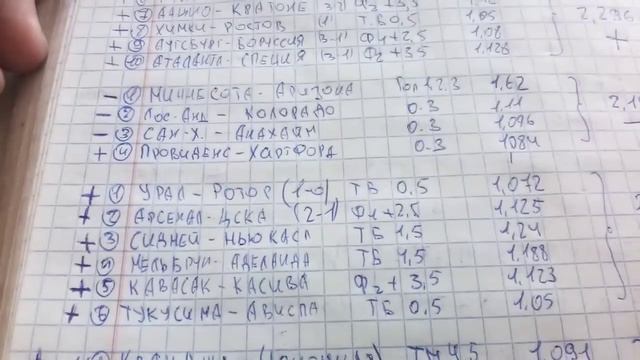 + 7 ЛАЦИО - КРАТОНЕ 3-2 Ф2 + 3,5 1,05
+ 8 ХИМКИ - РОСТОВ (1) ТБ 0,5 1,08 2,296
+ 9 АУГСБУРГ - БОРУССИЯ (3-1) Ф1 + 2,5 +
+ 10 АТАЛАНТА - СПЕЦИЯ (3-1) Ф2 + 3,5 1,128
- 1 МИННЕСОТА - АРИЗОНА 1,62
- 2 ЛОС-АНД - КОЛОРАДО 0.3 1,11
- 3 САН-Х. - АНАХАЙМ 0.3 1,096
+ 4 ПРОВИДЕНС - ХАРТФОРД 0.3 1084
+ 1 УРАЛ - РОТОР (1-0) ТБ 0,5 1,072
+ 2 АРСЕНАЛ - ЦСКА (2-1) Ф1 + 2,5 1,125
+ 3 СИДНЕЙ - НЬЮКАСЛ ТБ 1,5 1,24
+ 4 МЕЛЬБУРН - АДЕЛАИДА ТБ 1,5 1,188
+ 5 КАВАСАК - КАСИВА Ф2 + 3,5 1,123
+ 6 ТУКУСИМА - АВИСПА ТБ 0,5 1,05
ТМ 4,5 1,091